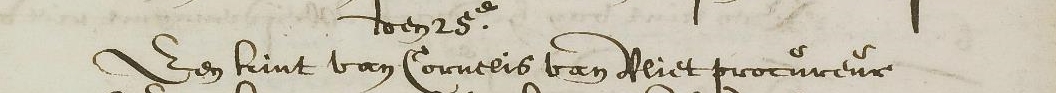 den 25e.
Een kint van Cornelis van Vliet procureur